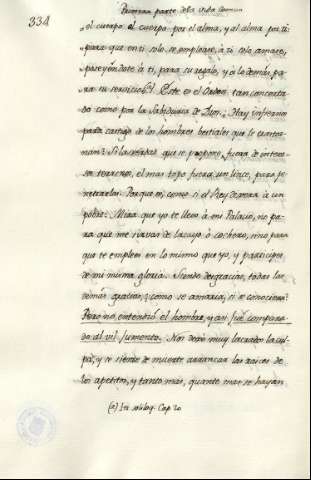 334
Primera parte de la vida comun
el cuerpo al cuerpo por el alma, y al alma por ti
para que en ti solo se emplease, à ti solo amase,
poseyendote à ti, para su regalo, y à lo demás pa-
ra su servicio. Este es el Orden tan concerta
do como por la Sabiduria de Dios. Hay infierno
para castigo de los hombres bestiales que le trastor-
nan? Si la verdad que se propone, fuera de interes
terreno, el mas topo fuera un lince, para pe-
netrarla. Porque es, como si el Rey dixera à un
pobre: Mira que yo te llevo à mi Palacio, no pa-
ra que me sirvas de lacayo, ò cochero, sino para
que te emplees en lo mismo que yo, y participes
de mi misma gloria. Siendo desgracias, todas las
demás gracias, y como se amaria, si se conociera?
Pero no, entendió el hombre, y asi fué compara-
do al vil Jumento. Nos dexó muy lacrados la cul-
pa, y se siente de muerte arrancar las raices de
los apetitos, y tanto más, quanto mas se hayan
(a) Cap. 20